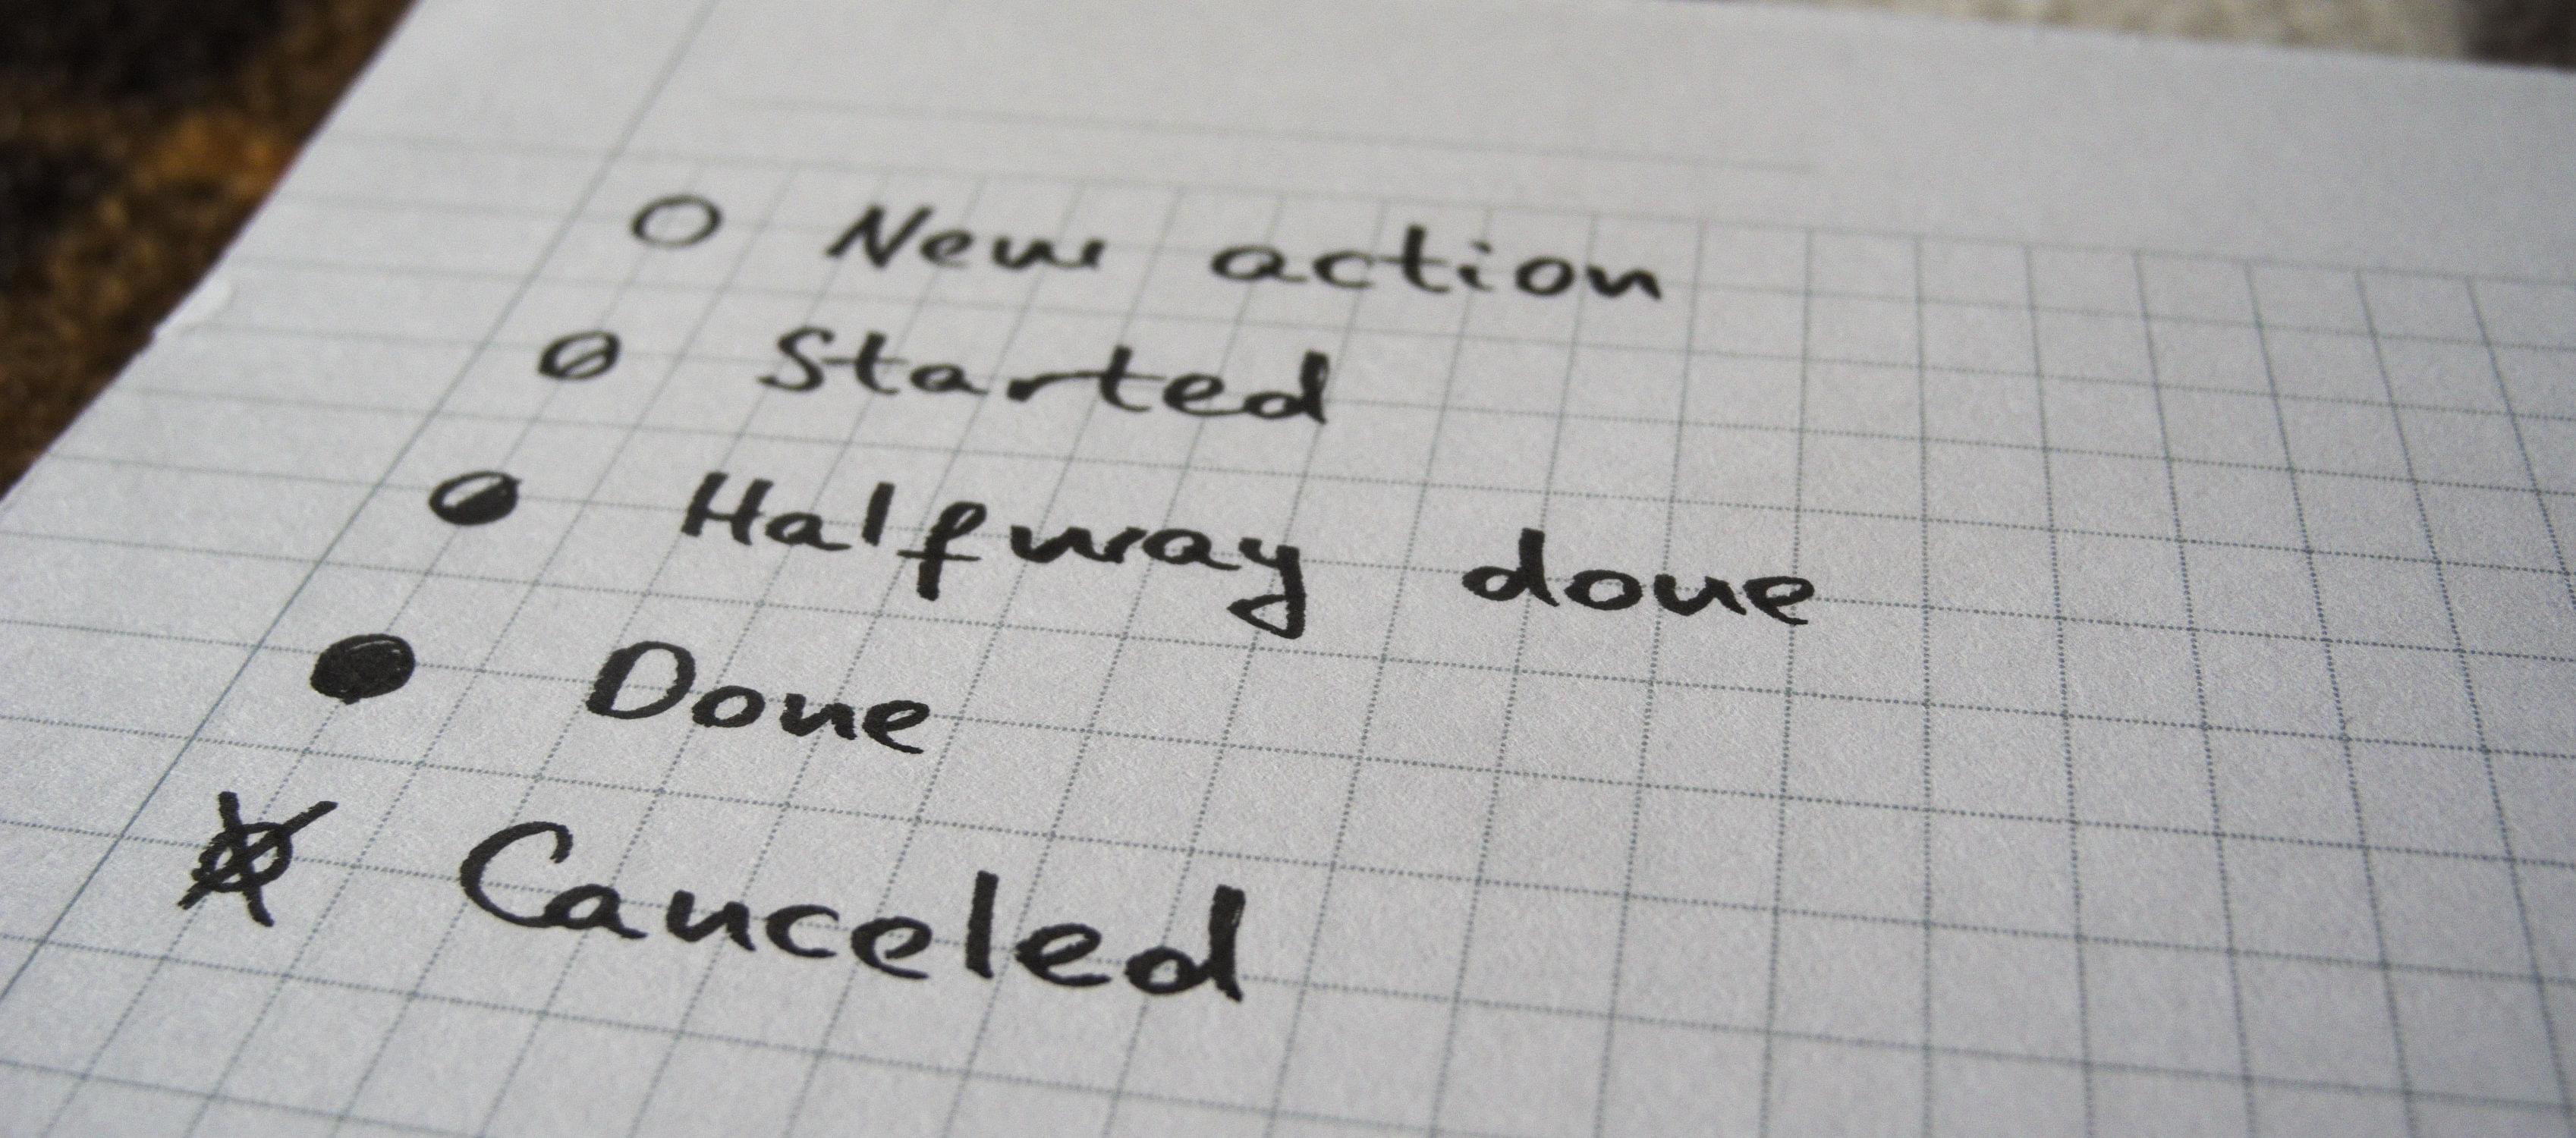 New action
Started
Halfway done
Done
Canceled